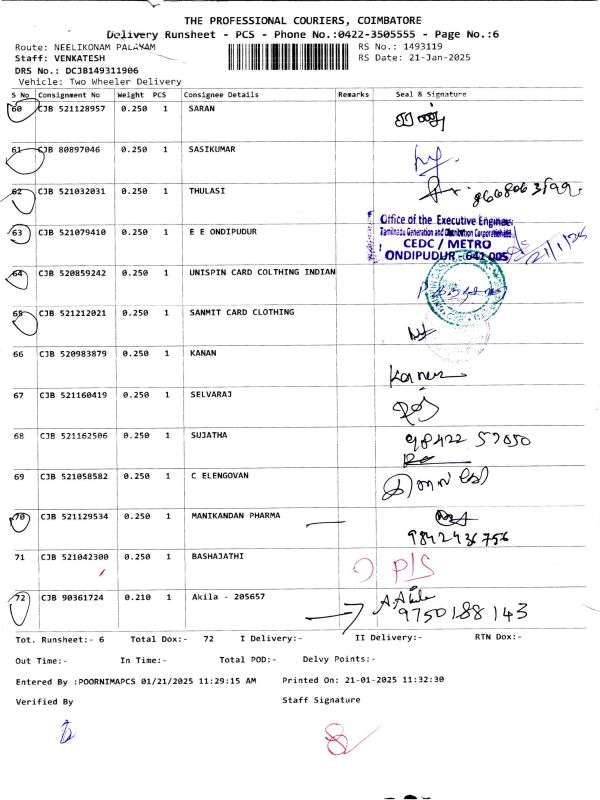 THE PROFESSIONAL COURIERS, COIMBATORE
Delivery Runsheet - PCS - Phone No.:0422-3505555 - Page No.:6
Route: NEELIKONAM PALAYAM RS No.: 1493119
Staff: VENKATESH RS Date: 21-Jan-2025
DRS No.: DCJB149311906
Vehicle: Two Wheeler Delivery
S No Consignment No Weight PCS Consignee Details Remarks Seal & Signature
60 CJB 521128957 0.250 1 SARAN
61 CJB 80897046 0.250 1 SASIKUMAR
62 CJB 521032031 0.250 1 THULASI
63 CJB 521079410 0.250 1 E E ONDIPUDUR
Office of the Executive Engineer
Tamilnadu Generation and Distribution Corporation Ltd.
CEDC / METRO
ONDIPUDUR - 641 005
21/1/25
64 CJB 520859242 0.250 1 UNISPIN CARD COLTHING INDIAN
65 CJB 521212021 0.250 1 SANMIT CARD CLOTHING
66 CJB 520983879 0.250 1 KANAN
67 CJB 521160419 0.250 1 SELVARAJ
68 CJB 521162506 0.250 1 SUJATHA 98422 57050
69 CJB 521058582 0.250 1 C ELENGOVAN
70 CJB 521129534 0.250 1 MANIKANDAN PHARMA
9842436756
71 CJB 521042300 0.250 1 BASHAJATHI P/S
72 CJB 90361724 0.210 1 Akila - 205657 A. Akila
9750188143
Tot. Runsheet:- 6 Total Dox:- 72 I Delivery:- II Delivery:- RTN Dox:-
Out Time:- In Time:- Total POD:- Delvy Points:-
Entered By :POORNIMAPCS 01/21/2025 11:29:15 AM Printed On: 21-01-2025 11:32:30
Verified By Staff Signature